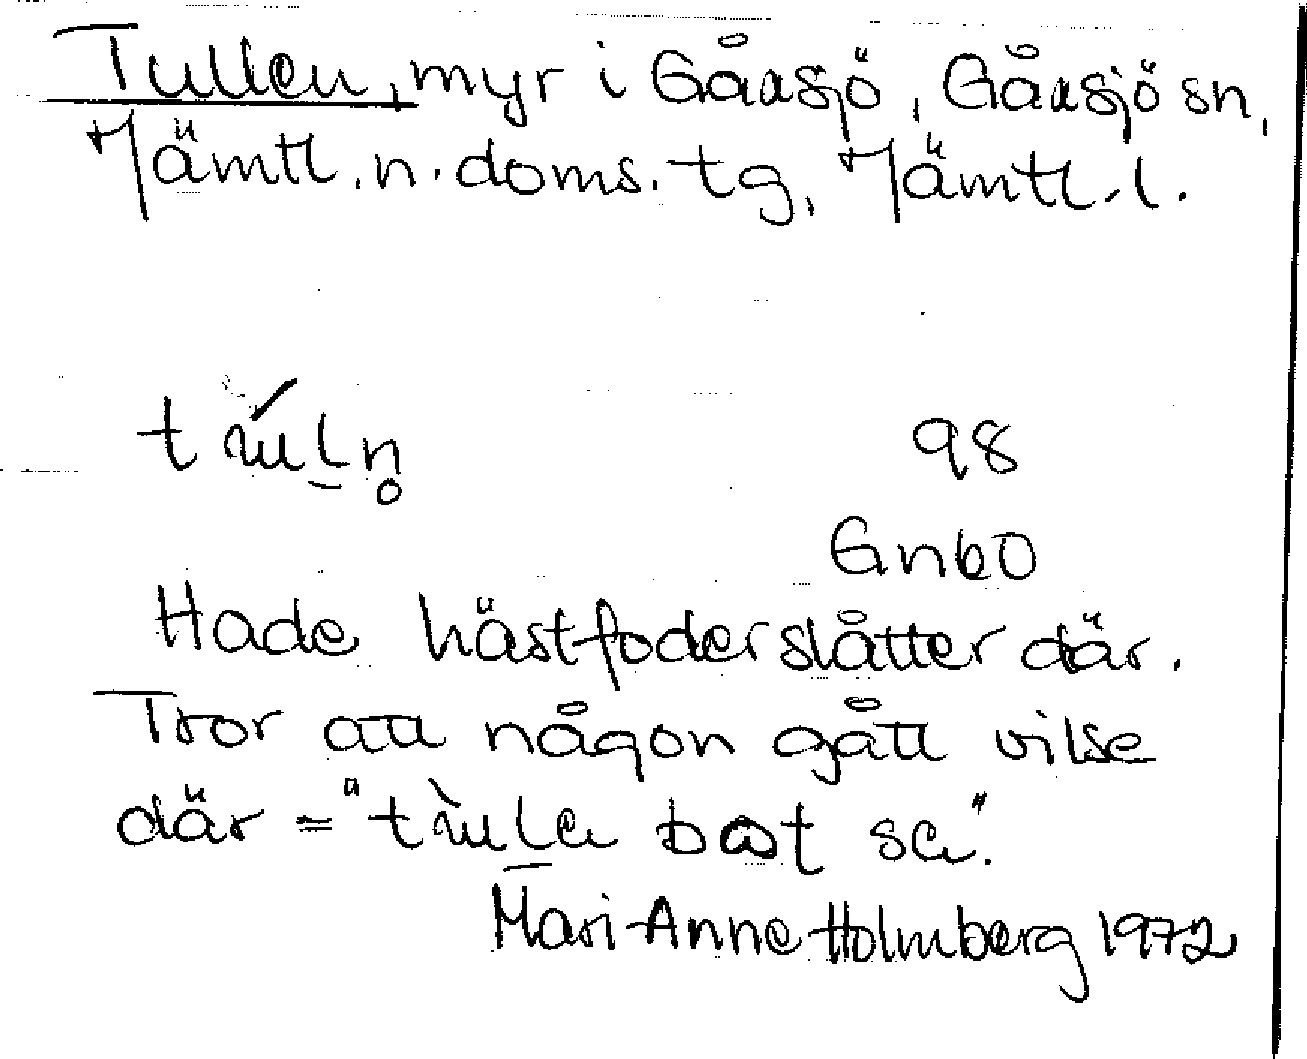 Tullen, myr i Gåxsjö, Gåxsjö sn,
Jämtl. n. doms. tg, Jämtl. l.
98
GnbO
Hade hästfoderslåtter där.
Tror att någon gått vilse
där = "
Mari-Anne Holmberg 1972